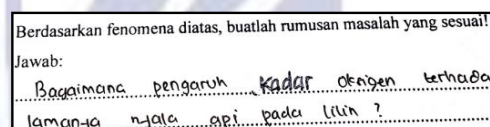 Berdasarkan fenomena diatas, buatlah rumusan masalah yang sesuai!
Jawab:
Bagaimana pengaruh kadar oksigen terhada
lamanya nyala api pada lilin ?